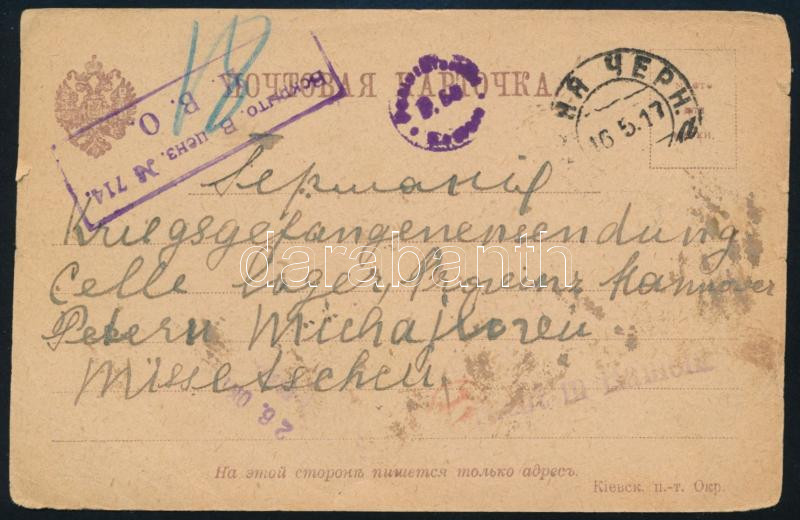 18
ПОЧТОВАЯ КАРТОЧКА
Вскрыто. В. ценз. № 714.
К. В. О.
НЯ ЧЕРН.
16.5.17
Германія
Kriegsgefangenensendung
Celle Lager, Provinz Hannover
Petern Michajlowen
Missetschen
darabanth
26.
На этой сторонѣ пишется только адресъ.
Кіевск. п.-т. Окр.